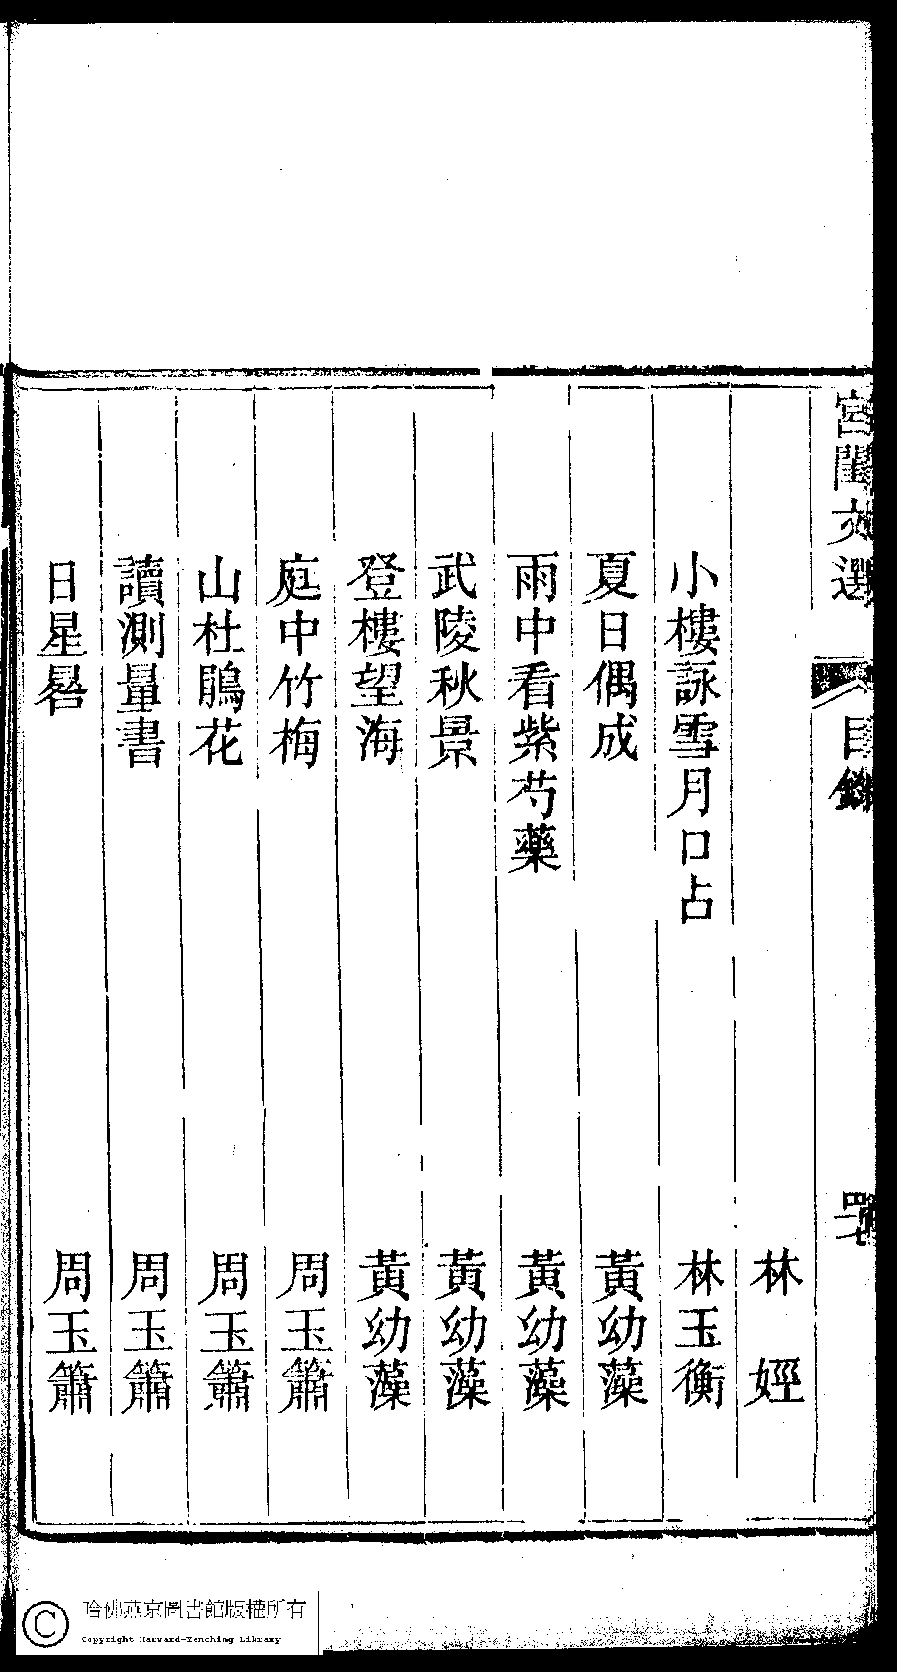 宮閨文選 目錄
林 娙
小樓詠雪月口占 林玉衡
夏日偶成 黃幼藻
雨中看紫芍藥 黃幼藻
武陵秋景 黃幼藻
登樓望海 黃幼藻
庭中竹梅 周玉簫
山杜鵑花 周玉簫
讀測量書 周玉簫
日星晷 周玉簫
哈佛燕京圖書館版權所有
Copyright Harvard-Yenching Library